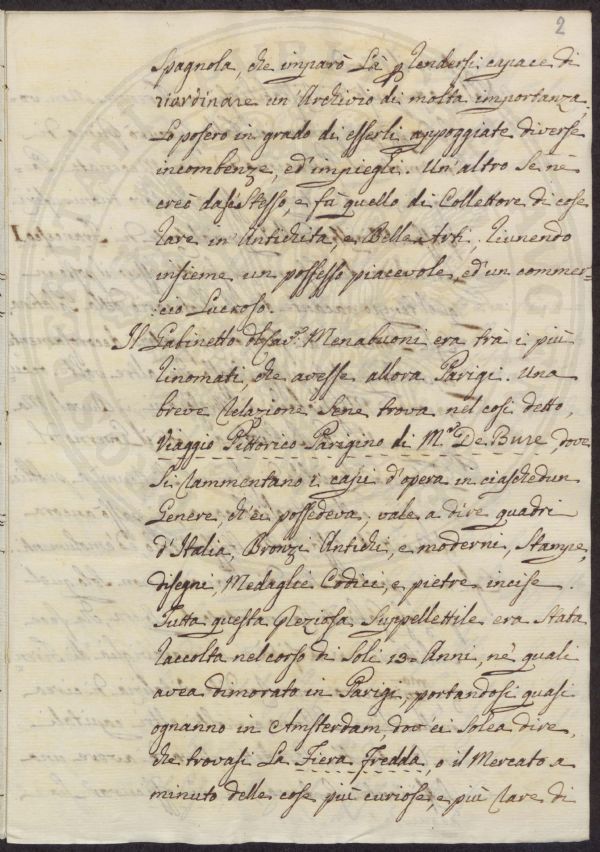 2
Spagnola, che imparò Là p rendersi capace di
riordinare un'Archivio di molta importanza.
Lo posero in grado di esserli appoggiate diverse
incombenze, ed'impieghi. Un'altro Se nè
creò da se Stesso, e fù quello di Collettore di cose
rare in Antichità, e Belle Arti. riunendo
insieme un possesso piacevole, ed'un commer=
:cio Lucroso.
Il Gabinetto del Sav.r Menabuoni era trà i più
rinomati, che avesse allora Parigi. Una
breve relazione Sene trova nel così detto,
Viaggio Pittorico Parigino di M.r De Bure, dove
Si rammentano i capi d'opera in ciaschedun
Genere, ch'ei possedeva, vale a dire quadri
d'Italia, Bronzi Antichi, e moderni, Stampe,
disegni, Medaglie Codici, e pietre incise.
Tutta questa preziosa Suppellettile era Stata
raccolta nel corso di Soli 13 = Anni, nè quali
avea dimorato in Parigi, portandosi quasi
ognanno in Amsterdam, dov'ei Solea dire,
che trovasi La Fiera fredda, o il Mercato a
minuto delle cose più curiose, e più rare di